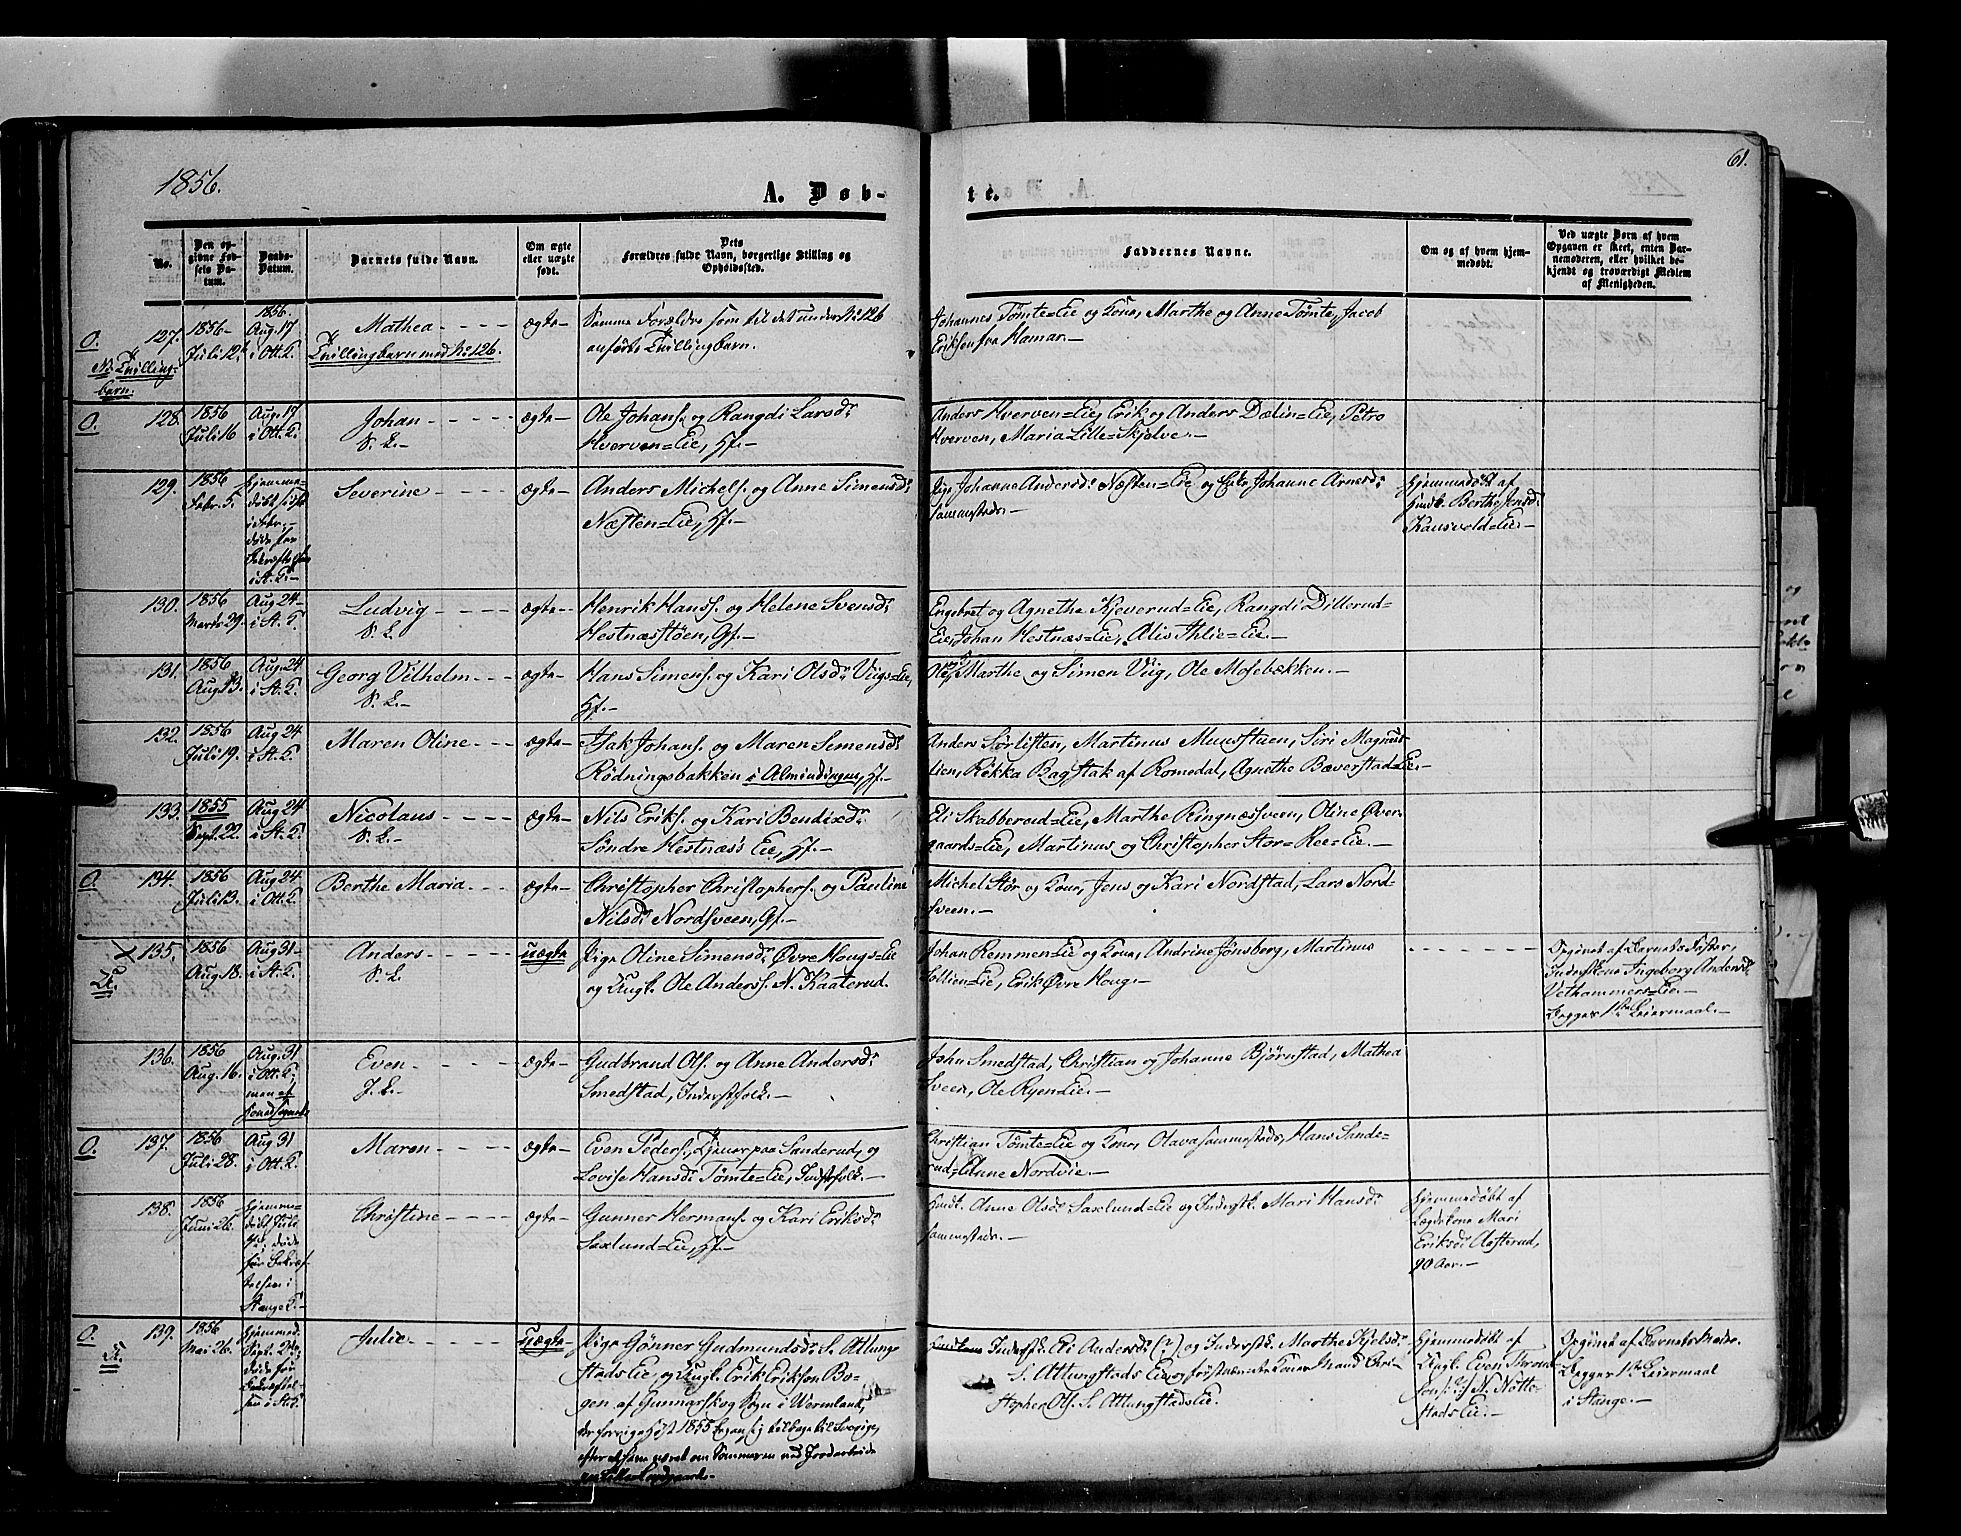 1856.
A. Døb-
te.
61.
No.
Den op-
givne Fød-
sels Da-
tum.
Daabs-
Datum.
Barnets fulde Navn.
Om ægte
eller uægte
født.
Dets
Forældres fulde Navn, borgerlige Stilling og
Opholdssted.
Faddernes Navne.
Om og af hvem hjem-
medøbt.
Ved uægte Børn af hvem
Opgaven er skeet, enten Bar-
nemoderen, eller hvilket be-
kjendt og troværdigt Medlem
af Menigheden.
O. 127.
NB Tvilling-
barn.
1856
Juli 12
1856.
Aug. 17
i Ott. K.
Mathea
Tvillingbarn med No 126.
ægte
Samme Forældre som til det under No 126
anførte Tvillingbarn.
Johannes Tømte=Eie og Kone, Marthe og Anne Tømte, Jacob
Eriksen fra Hamar.
O. 128.
1856
Juli 16
Aug. 17
i Ott. K.
Johan
ægte
Ole Johans. og Rangdi Larsd.
Hverven=Eie, Hf.
Anders Hverven=Eie, Erik og Anders Dælin=Eie, Petro
Hverven, Maria Lille=Skjelve.
129.
1856
Febr. 5.
Hjemme-
døbt
i Febr.
døde før
i St. K.
Severine
ægte
Anders Michels. og Anne Simensd.
Næsten=Eie, Hf.
Pige Johanne Andersd. Næsten=Eie og Johanne Arnesd.
sammesteds.
Hjemmedøbt af
Berthe Jensd.
Kausvold=Eie.
130.
1856
Marts 29.
Aug 24
i St. K.
Ludvig
ægte
Henrik Hans. og Helene Svensd.
Hestnæsstøen, Gf.
Engebret og Agnethe Kjeverud=Eie, Rangdi Dillerud=
Eie, Johan Hestnæs=Eie, Alis Thlie=Eie.
131.
1856
Aug. 3.
Aug. 24
i St. K.
Georg Vilhelm
ægte
Hans Simens. og Kari Olsd. Viigs=Eie,
Hf.
Ole, Marthe og Simen Viig, Ole Mosebækken.
132.
1856
Juli 19.
Aug 24
i St. K.
Maren Oline
ægte
Isak Johans. og Maren Simensd.
Rødningsbakken i Almindingen, Hf.
Anders Sørlisten, Martinus Muusstuen, Siri Magnus-
lien, Rikka Bagstak af Romedal, Agnethe Bæverstad=Eie.
133.
1855
Sept. 22.
Aug 24
i St. K.
Nicolaus
ægte
Nils Eriks. og Kari Bendixd.
Søndre Hestnæs Eie, Hf.
Eli Skabberud=Eie, Marthe Ringnæssveen, Oline Øver-
gaards=Eie, Martinus og Christopher Stor=Ree=Eie.
O. 134.
1856
Juli 13.
Aug 24
i Ott. K.
Berthe Maria
ægte
Christopher Christophers. og Pauline
Nilsd. Nordsveen, Gf.
Michel Stør og Kone, Jens og Kari Nordstad, Lars Nord-
sveen.
135.
1856
Aug. 18.
Aug 31
i St. K.
Anders
uægte
Pige Oline Simensd. Øvre Hougs=Eie
og Ungk. Ole Anders. N. Kaaterud.
Johan Remmen=Eie og Kone, Andrine Jønsberg, Martinus
Lillien=Eie, Erik Øvre Houg.
Opgivet af Barnets Faster,
Inderstkone Ingeborg Andersd.
Vethammers=Eie.
Begges 1ste Leiermaal.
136.
1856
Aug. 16.
Aug. 31
i Ott. K.
Even
ægte
Gudbrand Ols. og Anne Andersd.
Smedstad, Inderstfolk.
John Smedstad, Christian og Johanne Bjørnstad, Mathea
Sveen, Ole Ryen=Eie.
O. 137.
1856
Juli 28.
Aug 31
i Ott. K.
Maren
ægte
Even Peders., Tjener paa Sanderud, og
Lovise Hansd. Tømte=Eie, Indstfolk.
Christian Tømte=Eie og Kone, Olava sammesteds, Hans Sande-
rud, Anne Nordvie.
138.
1856
Juni 26.
Hjemme-
døbt
døde
før Bekræf-
telsen i
Stange K.
Christine
ægte
Gunner Hermans. og Kari Eriksd.
Saxlund=Eie, Hf.
Anne Olsd. Saxlund=Eie og Inderstk. Mari Hansd.
sammesteds.
Hjemmedøbt af
Lægdskone Mari
Eriksd. Aasterud,
90 Aar.
O. 139.
1856
Mai 26.
Hjemmed.
døde før
Bekræftel-
sen i St. K.
Julie
uægte
Pige Gønner Gudmundsd. S. Attung-
stads Eie, og Ungk. Erik Erikson Bo-
gen af Gunnarskog Sogn i Wermland,
der forrige Høst 1855 begav sig tilbage til Sverige,
efter at have været om Sommeren ved Jordarbeide
Inderstk. Eli Andersd. (?) og Inderstk. Marthe Kjelsd.
S. Attungstads Eie og førstnævnte Kones Mand Chri-
stopher Ols. S. Attungstads Eie.
Hjemmedøbt af
Ungk. Even Thron-
sens. (?) N. Nøtte-
stads Eie.
Opgivet af Barnets Moder.
Begges 1ste Leiermaal
i Stange.